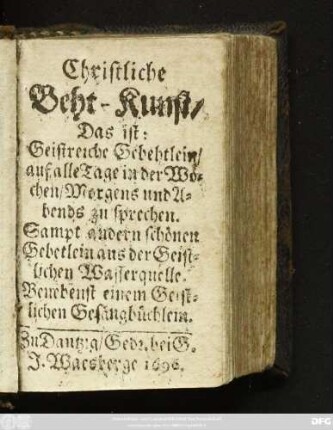 Christliche
Beht-Kunst/
Das ist:
Geistreiche Gebehtlein/
auf alle Tage in der Wo-
chen/Morgens und A-
bends zu sprechen.
Sampt andern schönen
Gebetlein aus der Geist-
lichen Wasserquelle.
Benebenst einem Geist-
lichen Gesangbüchlein.
Zu Dantzig/Gedr. bei G.
J. Waesberge 1696.